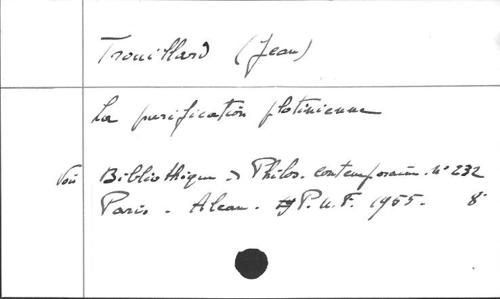 Trouillard (Jean)
La purification plotinienne
Voir Bibliothèque de Philos. contemporaine. N° 232
Paris - Alcan - P.U.F. 1955. 8°